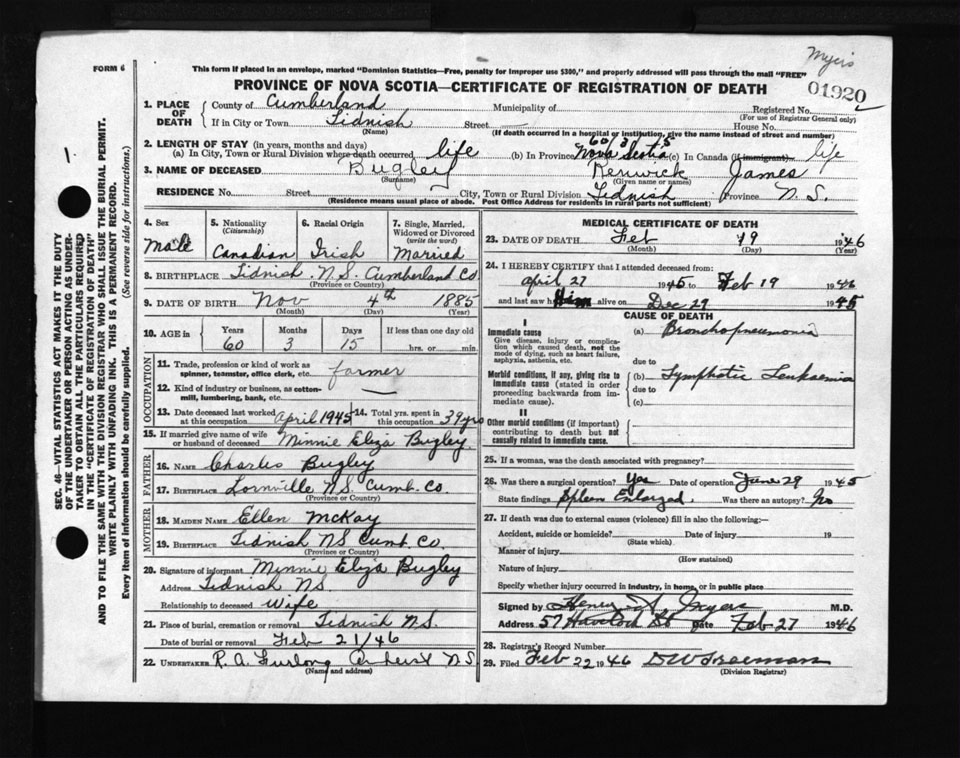 Myers
FORM 6
This form if placed in an envelope, marked "Dominion Statistics—Free, penalty for improper use $300," and properly addressed will pass through the mail "FREE"
PROVINCE OF NOVA SCOTIA—CERTIFICATE OF REGISTRATION OF DEATH
01920
1. PLACE OF DEATH County of Cumberland Municipality of Registered No.
(For use of Registrar General only)
If in City or Town Tidnish Street House No.
(Name) (If death occurred in a hospital or institution, give the name instead of street and number)
2. LENGTH OF STAY (in years, months and days) 60 3 15
(a) In City, Town or Rural Division where death occurred life (b) In Province Nova Scotia (c) In Canada (if immigrant) life
3. NAME OF DECEASED Bugley Renwick James
(Surname) (Given name or names)
RESIDENCE No. Street City, Town or Rural Division Tidnish Province N.S.
(Residence means usual place of abode. Post Office Address for residents in rural parts not sufficient)
4. Sex Male
5. Nationality (Citizenship) Canadian
6. Racial Origin Irish
7. Single, Married, Widowed or Divorced (write the word) Married
8. BIRTHPLACE Tidnish N.S. Cumberland Co
(Province or Country)
9. DATE OF BIRTH Nov 4th 1885
(Month) (Day) (Year)
10. AGE in Years Months Days If less than one day old
60 3 15 hrs. or min.
OCCUPATION
11. Trade, profession or kind of work as spinner, teamster, office clerk, etc. farmer
12. Kind of industry or business, as cotton-mill, lumbering, bank, etc. —
13. Date deceased last worked at this occupation April 1945 14. Total yrs. spent in this occupation 39 yrs
15. If married give name of wife or husband of deceased Minnie Eliza Bugley
FATHER
16. NAME Charles Bugley
17. BIRTHPLACE Lornville N.S. Cumb. Co.
(Province or Country)
MOTHER
18. MAIDEN NAME Ellen McKay
19. BIRTHPLACE Tidnish NS Cumb. Co.
(Province or Country)
20. Signature of informant Minnie Eliza Bugley
Address Tidnish N.S.
Relationship to deceased Wife
21. Place of burial, cremation or removal Tidnish N.S.
Date of burial or removal Feb 21/46
22. UNDERTAKER R. A. Furlong Amherst N.S.
(Name and address)
MEDICAL CERTIFICATE OF DEATH
23. DATE OF DEATH Feb 19 1946
(Month) (Day) (Year)
24. I HEREBY CERTIFY that I attended deceased from:
April 27 1945 to Feb 19 1946
and last saw him alive on Dec 29 1945
CAUSE OF DEATH
I
Immediate cause
Give disease, injury or complication which caused death, not the mode of dying, such as heart failure, asphyxia, asthenia, etc.
(a) Bronchopneumonia
due to
Morbid conditions, if any, giving rise to immediate cause (stated in order proceeding backwards from immediate cause).
(b) Lymphatic Leukaemia
due to
(c)
II
Other morbid conditions (if important) contributing to death but not causally related to immediate cause.
25. If a woman, was the death associated with pregnancy?
26. Was there a surgical operation? Yes Date of operation June 29 1945
State findings Spleen Enlarged. Was there an autopsy? No
27. If death was due to external causes (violence) fill in also the following:—
Accident, suicide or homicide? Date of injury 19
(State which)
Manner of injury
(How sustained)
Nature of injury
Specify whether injury occurred in industry, in home, or in public place
Signed by Henry Myers M.D.
Address 57 Havelock St Date Feb 27 1946
28. Registrar's Record Number
29. Filed Feb 22 1946 D W Freeman
(Division Registrar)
1
SEC. 46—VITAL STATISTICS ACT MAKES IT THE DUTY
OF THE UNDERTAKER OR PERSON ACTING AS UNDER-
TAKER TO OBTAIN ALL THE PARTICULARS REQUIRED
IN THE "CERTIFICATE OF REGISTRATION OF DEATH"
AND TO FILE THE SAME WITH THE DIVISION REGISTRAR WHO SHALL ISSUE THE BURIAL PERMIT.
WRITE PLAINLY WITH UNFADING INK. THIS IS A PERMANENT RECORD.
Every item of information should be carefully supplied. (See reverse side for instructions.)